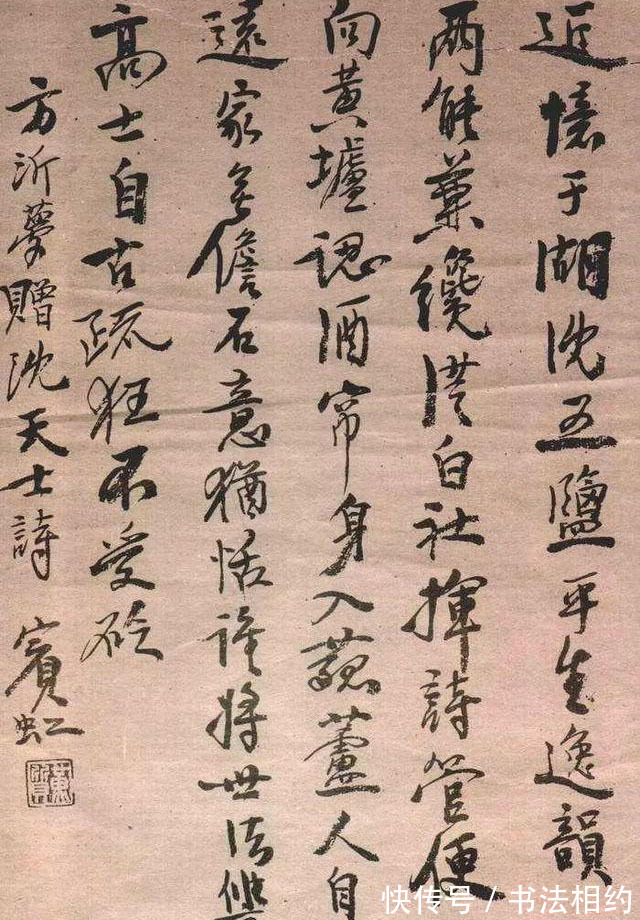 近憶于湖沈五鹽平生逸韻
兩能兼纔從白社揮詩管便
向黃壚認酒帘身入菰蘆人自
遠家無儋石意猶恬誰將世法繩
高士自古疏狂不受砭
方沂夢贈沈天士詩 賓虹
快传号 / 书法相约